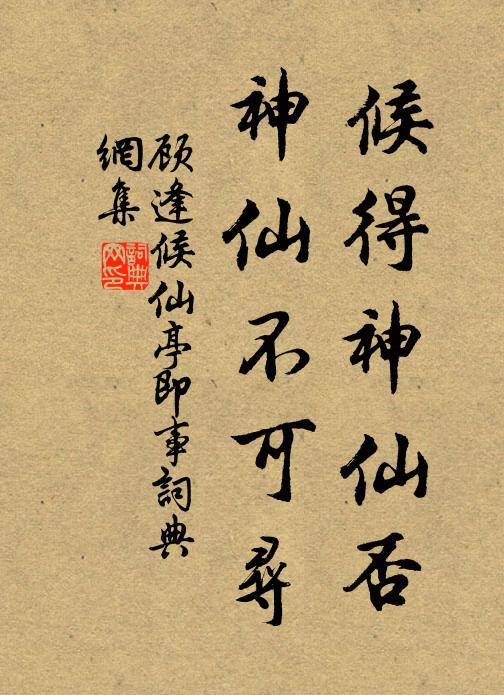 候得神仙否
神仙不可尋
顾逢候仙亭即事詞典
網集
詞典
网印